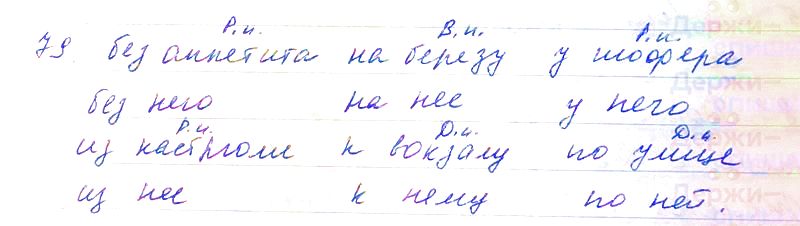 Р.п. В.п. Р.п.
79. без аппетита на березу у шофера
без него на нее у него
Р.п. Д.п. Д.п.
из кастрюли к вокзалу по улице
из нее к нему по ней.
Держи–
Держи–
Держи–
Держи–